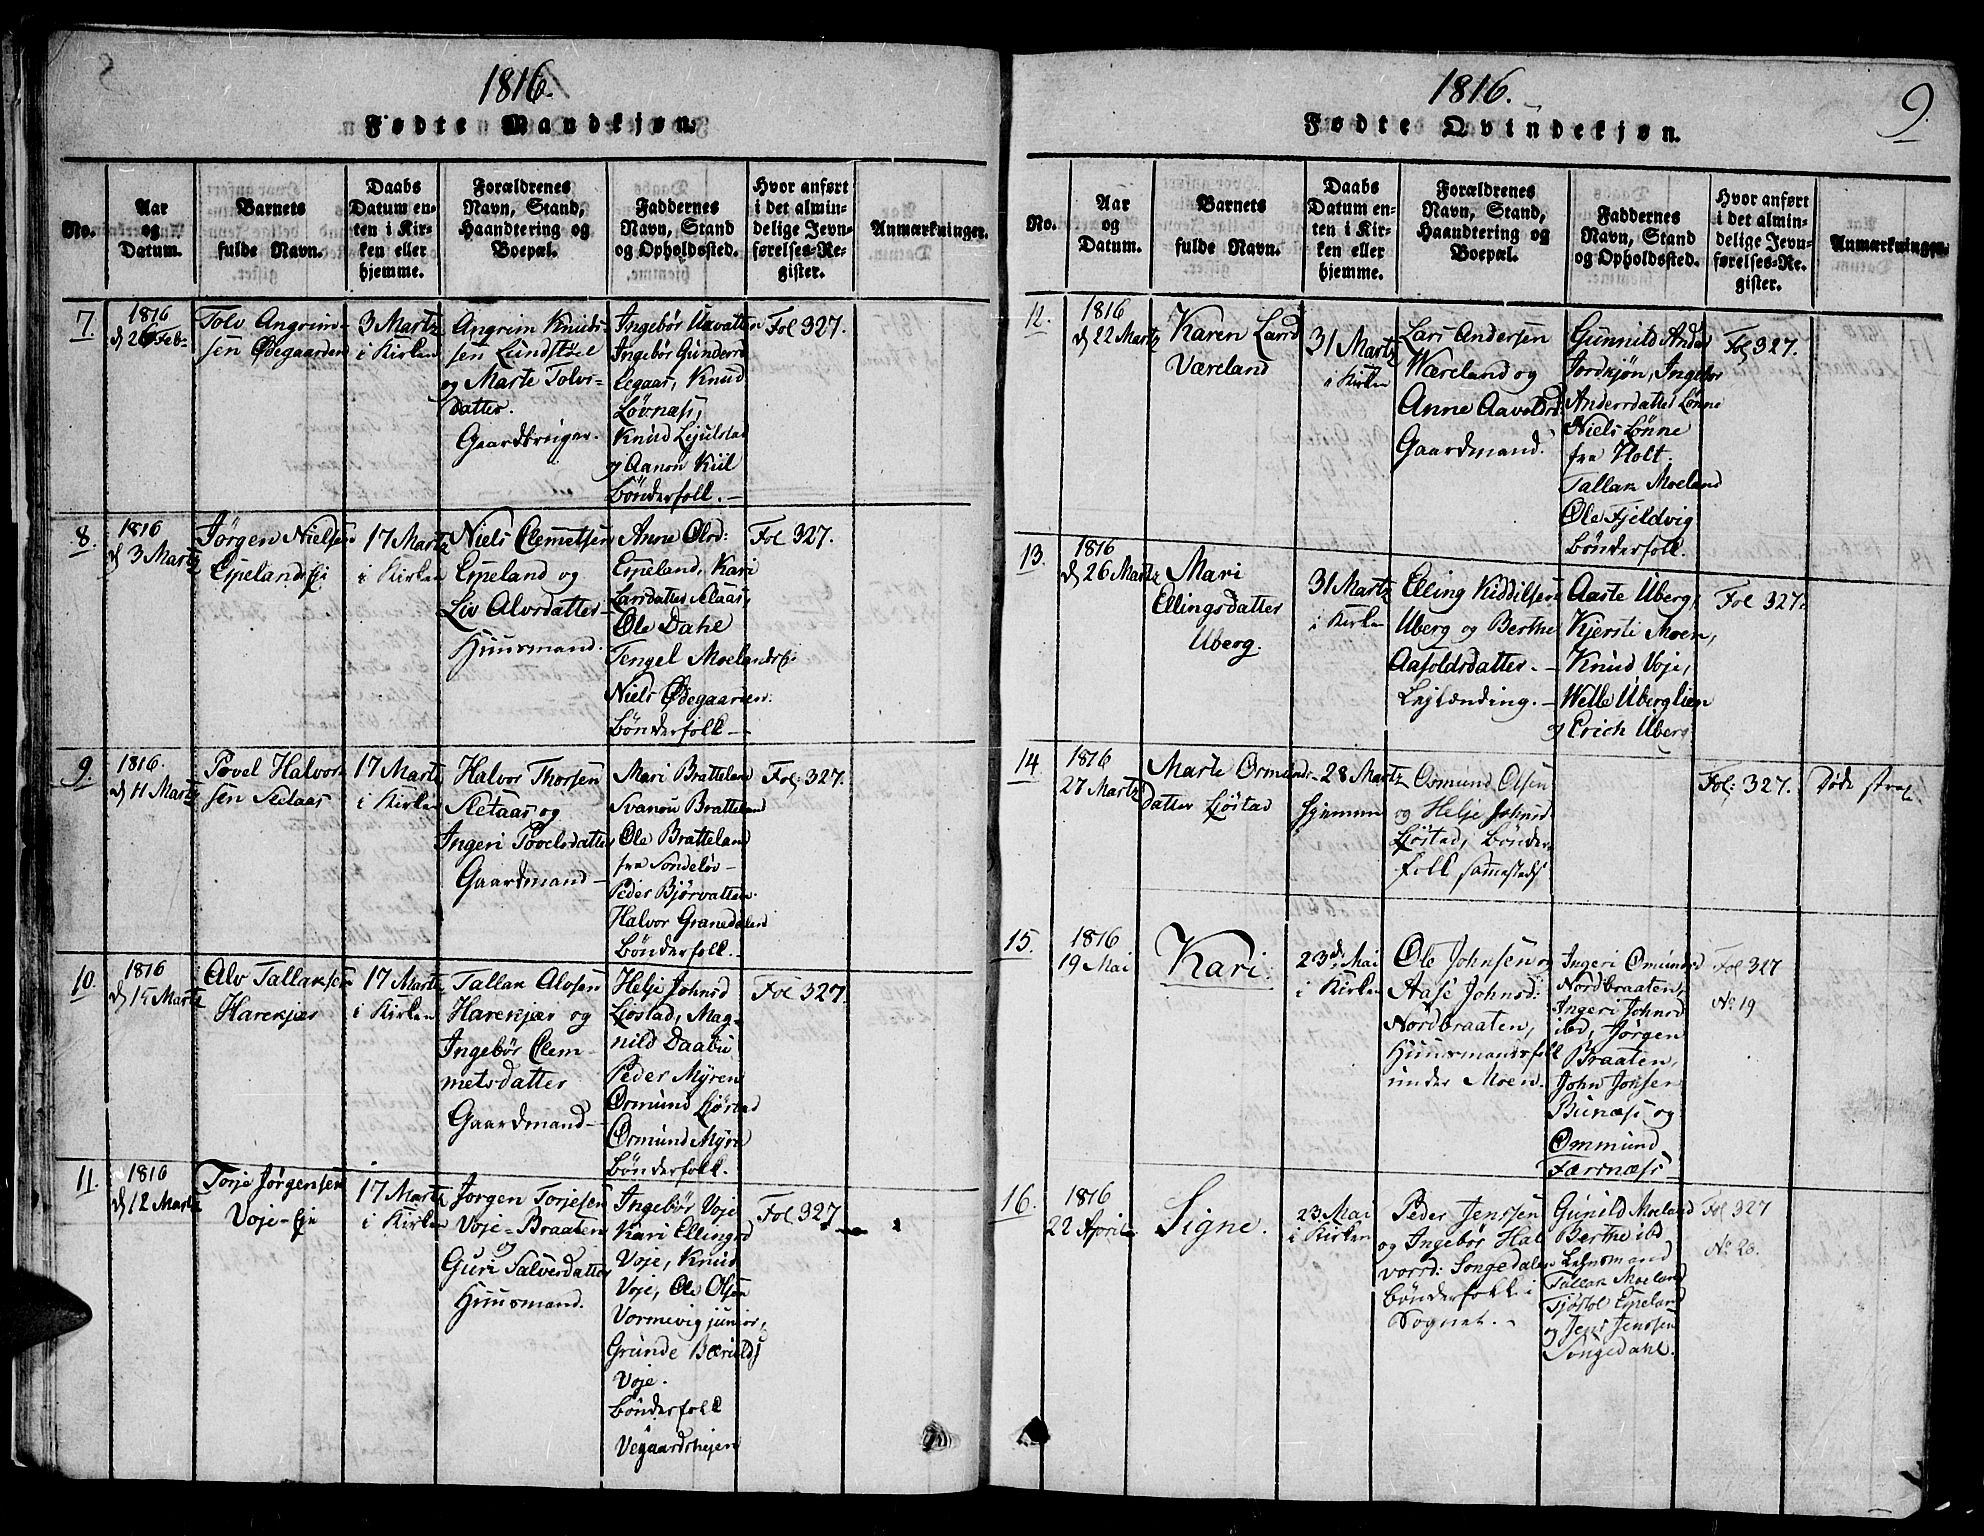 1816.
Fødte Mandkjøn.
No.
Aar
og
Datum.
Barnets
fulde Navn.
Daabs
Datum en-
ten i Kir-
ken eller
hjemme.
Forældrenes
Navn, Stand,
Haandtering og
Boepæl.
Faddernes
Navn, Stand
og Opholdssted.
Hvor anført
i det almin-
delige Jevn-
førelses-Re-
gister.
Anmærkninger.
7.
1816
d 26 Feb-
Tolv Angrim-
sen Ødegaarden
3 Martz
i Kirken
Angrim Knuds-
sen Lundstøel
og Marte Tolvs-
datter.
Gaardbruiger.
Ingebør Uavatten
Ingebør Gunderd
Legaas, Knud
Løvnæss,
Knud Lejulstad
og Aanon Kiil
Bønderfolk.-
Fol 327.
8.
1816
d 3 Martz
Jørgen Nielsen
Espelands Eje
17 Martz
i Kirken
Niels Clemetsen
Espeland og
Liv Alvsdatter
Huusmand.
Anne Olsd:
Espeland, Kari
Larsdatter Selaas,
Ole Dahl
Tengel Moelands Eje
Niels Ødegaarden.
Bønderfolk-
Fol 327.
9.
1816.
d 11 Martz
Povel Halvor-
sen Seelaas
17 Martz
i Kirken
Halvor Thorsen
Seelaas og
Ingeri Povelsdatter
Gaardmand-
Mari Bratteland
Svanou Bratteland
Ole Bratteland
fra Sondeløv-
Peder Bjørvatten
Halvor Granedalen
Bønderfolk.
Fol: 327.
10.
1816
d 15 Martz
Alv Tallaksen
Harekjær
17 Martz
i Kirken
Tallak Alvsen
Harekjær og
Ingebør Clem-
metsdatter
Gaardmand-
Helje Johnsd
Ljøstad, Mag-
nild Daabu
Peder Myren
Ormund Ljøstad
Ormund Myre
Bønderfolk.
Fol 327.
11.
1816
d 12 Martz
Torje Jørgensen
Voje-Eje
17 Martz
i Kirken
Jørgen Torjesen
Voje-Braaten
og
Guri Salvesdatter
Huusmand.
Ingebør Voje
Kari Ellingsd
Voje, Knud
Voje, Ole Olsen
Vormevig junior,
Grunde Bæruldsj
Voje.
Bønderfolk
Vegaardshejen
Fol 327
1816.
9.
Fødte Qvindekjøn.
No.
Aar
og
Datum.
Barnets
fulde Navn.
Daabs
Datum en-
ten i Kir-
ken eller
hjemme.
Forældrenes
Navn, Stand,
Haandtering og
Boepæl.
Faddernes
Navn, Stand
og Opholdssted.
Hvor anført
i det almin-
delige Jevn-
førelses-Re-
gister.
Anmærkninger.
12.
1816
d 22 Martz
Karen Larsd
Væreland
31 Martz
i Kirken
Lars Andersen
Wæreland og
Anne Aavoldsd.
Gaardmand.
Gunnild Anders
Jordkjøn, Ingebor
Andersdatter Lønne
Niels Lønne
fra Holt.
Tallak Moeland
Ole Fjeldvig
Bønderfolk.
Fol 327.
13.
1816
d 26 Martz
Mari
Ellingsdatter
Uberg.
31 Martz
i Kirken
Elling Kiddilsen
Uberg og Berthe
Aasoldsdatter.-
Lejlænding.-
Aaste Uberg,
Kjersti Moen,
Knud Voje,
Welle Uberglien
og Erich Uberg
Fol 327.
14
1816
27 Martz
Marte Ormunds-
datter Ljøstad
28 Martz
hjemme
Osmund Olsen
og Helje Johnsd
Ljøstad, Bønder-
folk sammesteds
Fol: 327.
Døde strax.
15.
1816
19 Mai
Kari.
23d Mai
i Kirken
Ole Johnsen og
Aase Johnsd:
Nordbraaten,
Huusmandsfolk
under Moen.
Ingeri Omundsd
Nordbraaten,
Ingeri Johnsd
ibd, Jørgen
Braaten,
John Jonsen
Bunæss og
Ommund
Færsnæss
Fol 327
No 19
16.
1816
22 April
Signe.
23 Mai
i Kirken
Peder Jenssen
og Ingebør Hal
vorsd: Songedalen
Bønderfolk i
Sognet.-
Gunild Moeland
Berthe ibd
Lehnsmand
Tallak Moeland
Tjøstol Espeland
og Jens Jenssen
Songedahl.
Fol 327
No 20.